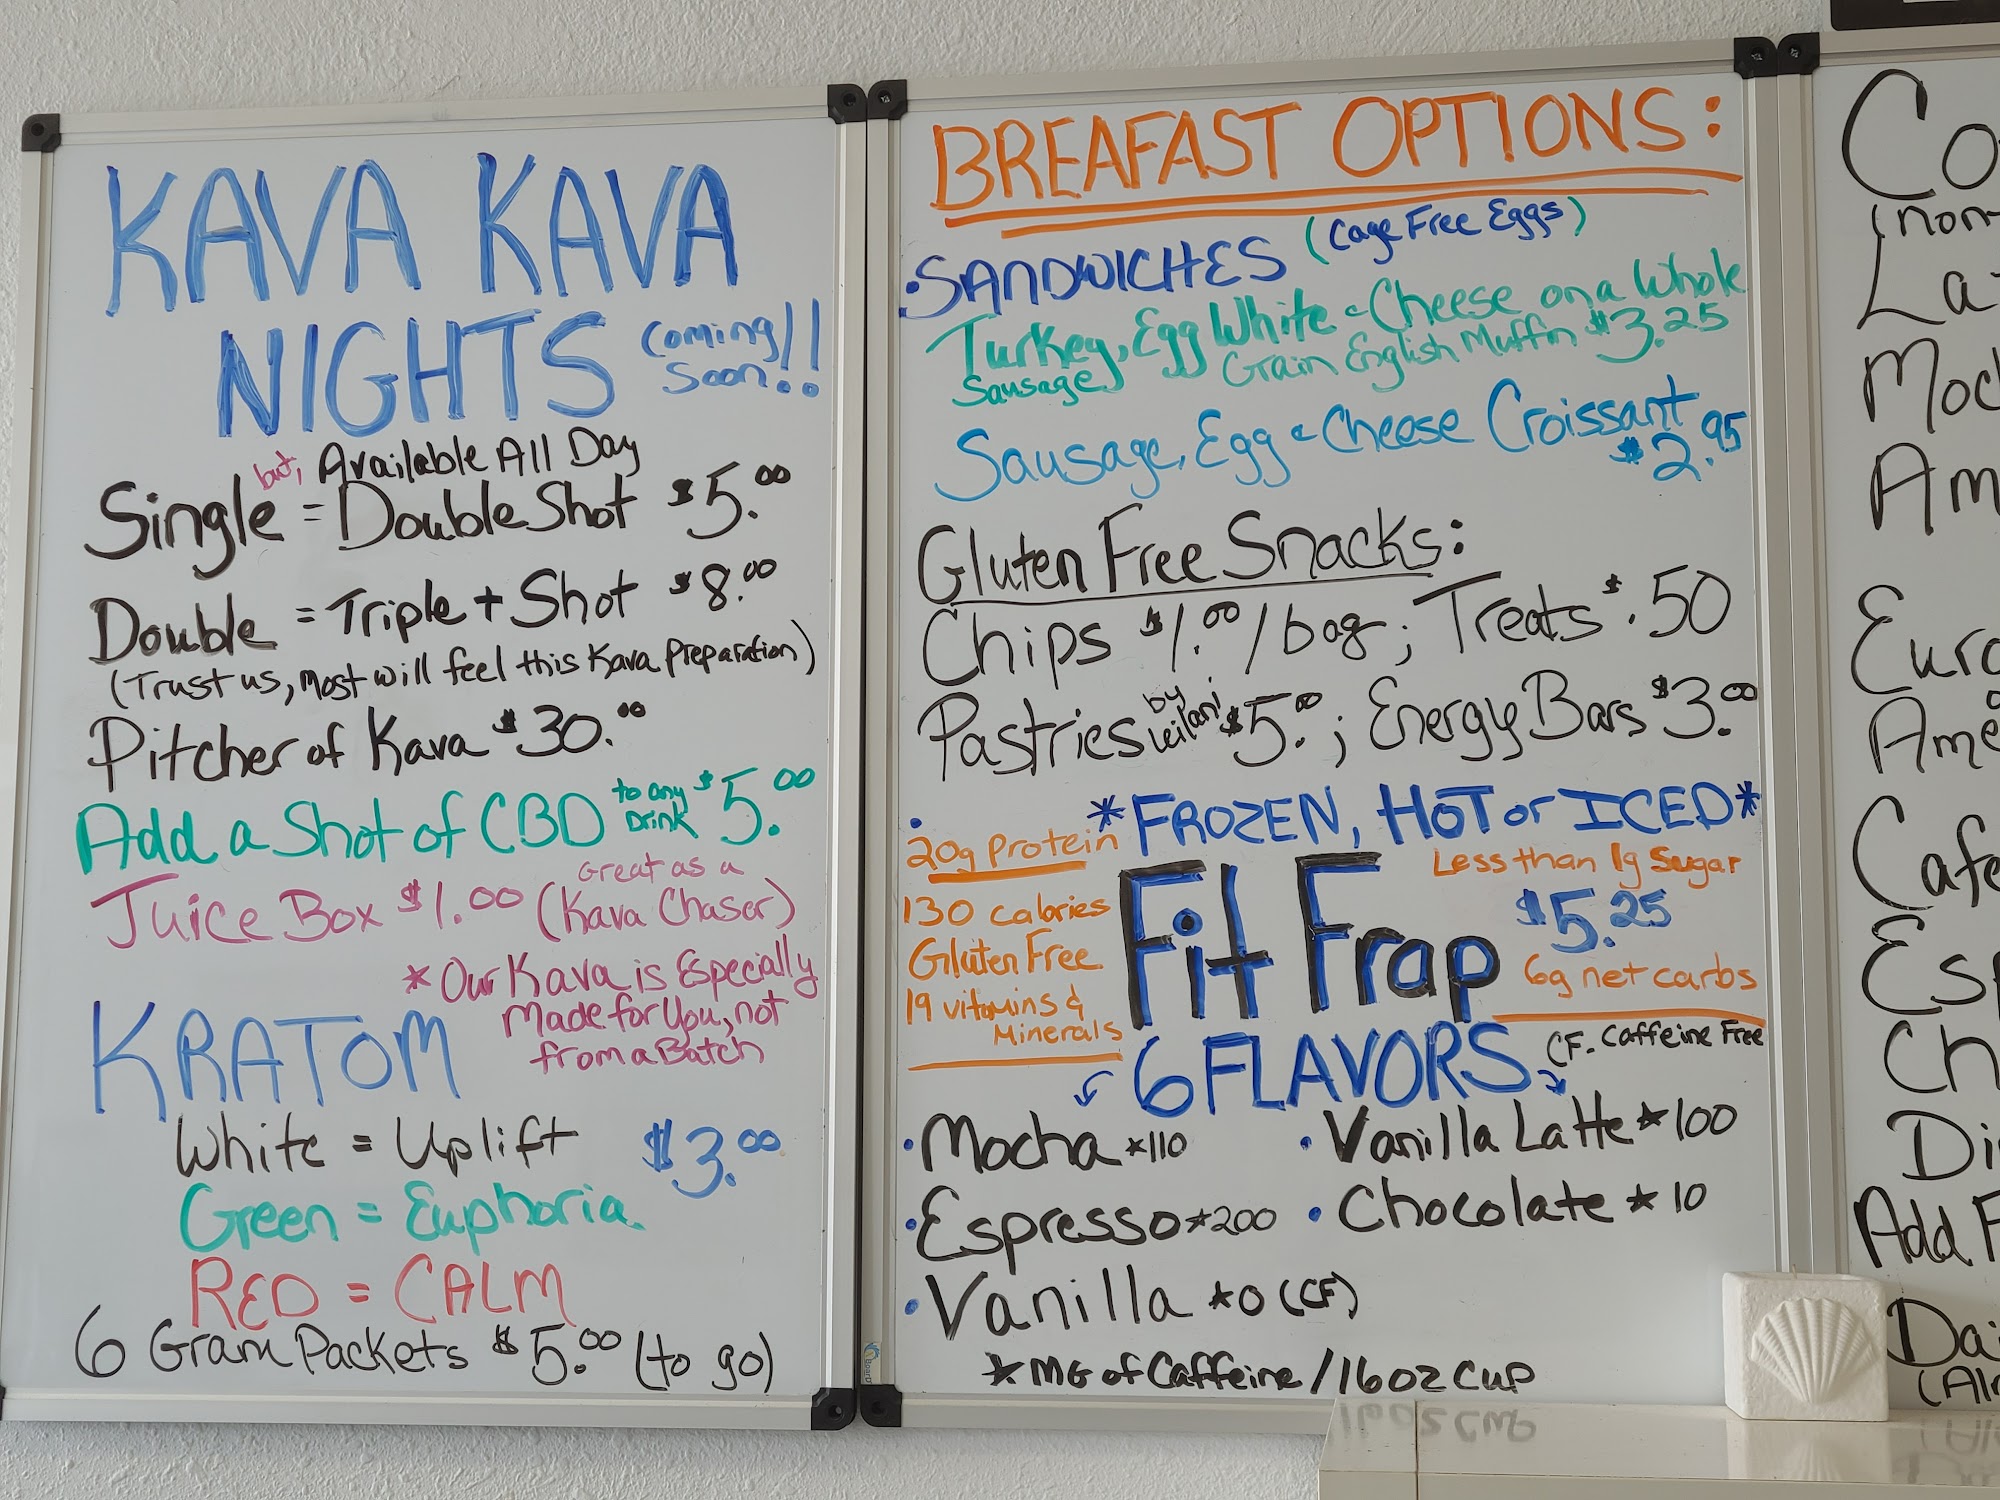 KAVA KAVA
NIGHTS Coming Soon!!
but, Available All Day
Single = Double Shot $5.00
Double = Triple + Shot $8.00
(Trust us, most will feel this Kava Preparation)
Pitcher of Kava $30.00
Add a Shot of CBD to any Drink $5.00
Juice Box $1.00 (Great as a Kava Chaser)
* Our Kava is Especially
Made for You, not
from a Batch
KRATOM
White = Uplift $3.00
Green = Euphoria.
RED = CALM
6 Gram Packets $5.00 (to go)
BREAFAST OPTIONS:
• SANDWICHES (Cage Free Eggs)
Turkey Sausage, Egg White & Cheese on a Whole
Grain English Muffin $3.25
Sausage, Egg & Cheese Croissant
$2.95
Gluten Free Snacks:
Chips $1.00/bag; Treats $.50
Pastries by Leilani $5.00; Energy Bars $3.00
• *FROZEN, HOT or ICED*
20g Protein
130 calories
Gluten Free
19 vitamins &
Minerals
Fit Frap
Less than 1g Sugar
$5.25
6g net carbs
6 FLAVORS
CF. Caffeine Free
• Mocha *110
• Vanilla Latte *100
• Espresso *200
• Chocolate *10
• Vanilla *0 (CF)
* MG of Caffeine/16oz cup
Co
(non-
La
Moc
Am
Euro
Ame
Cafe
Esp
Ch
Di
Add F
Dai